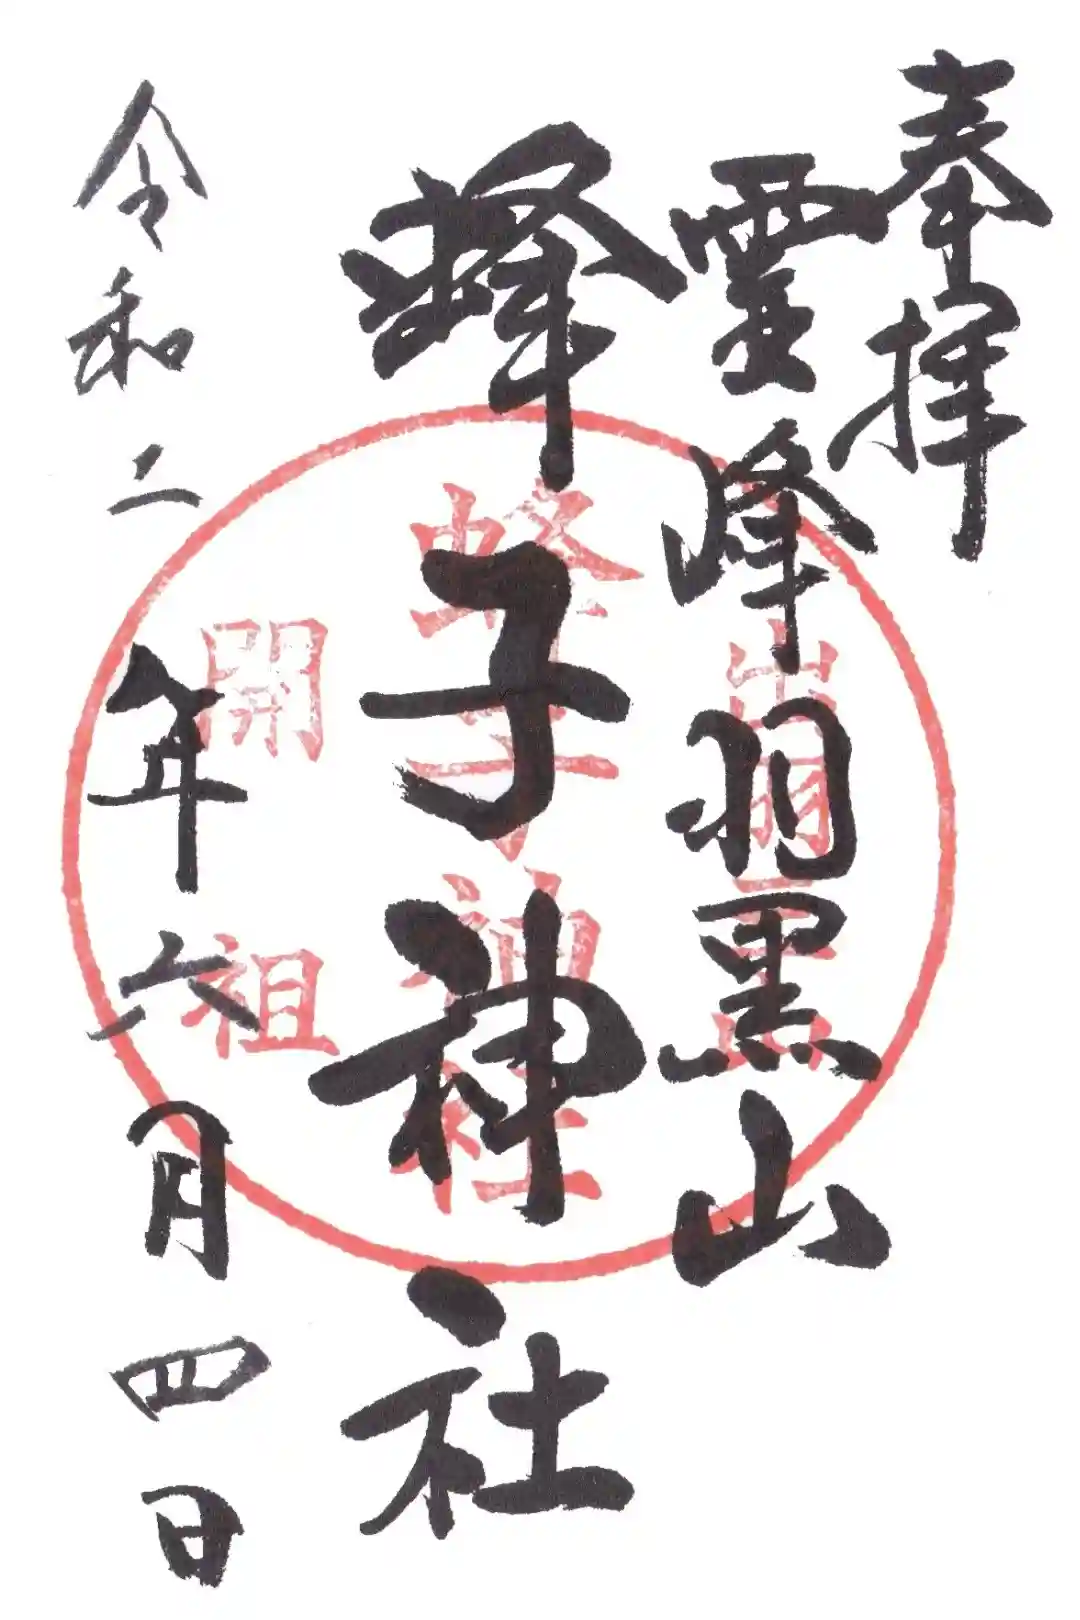 奉拝
霊峰羽黒山
蜂子神社
令和二年六月四日
出羽三山
蜂子神社
開祖